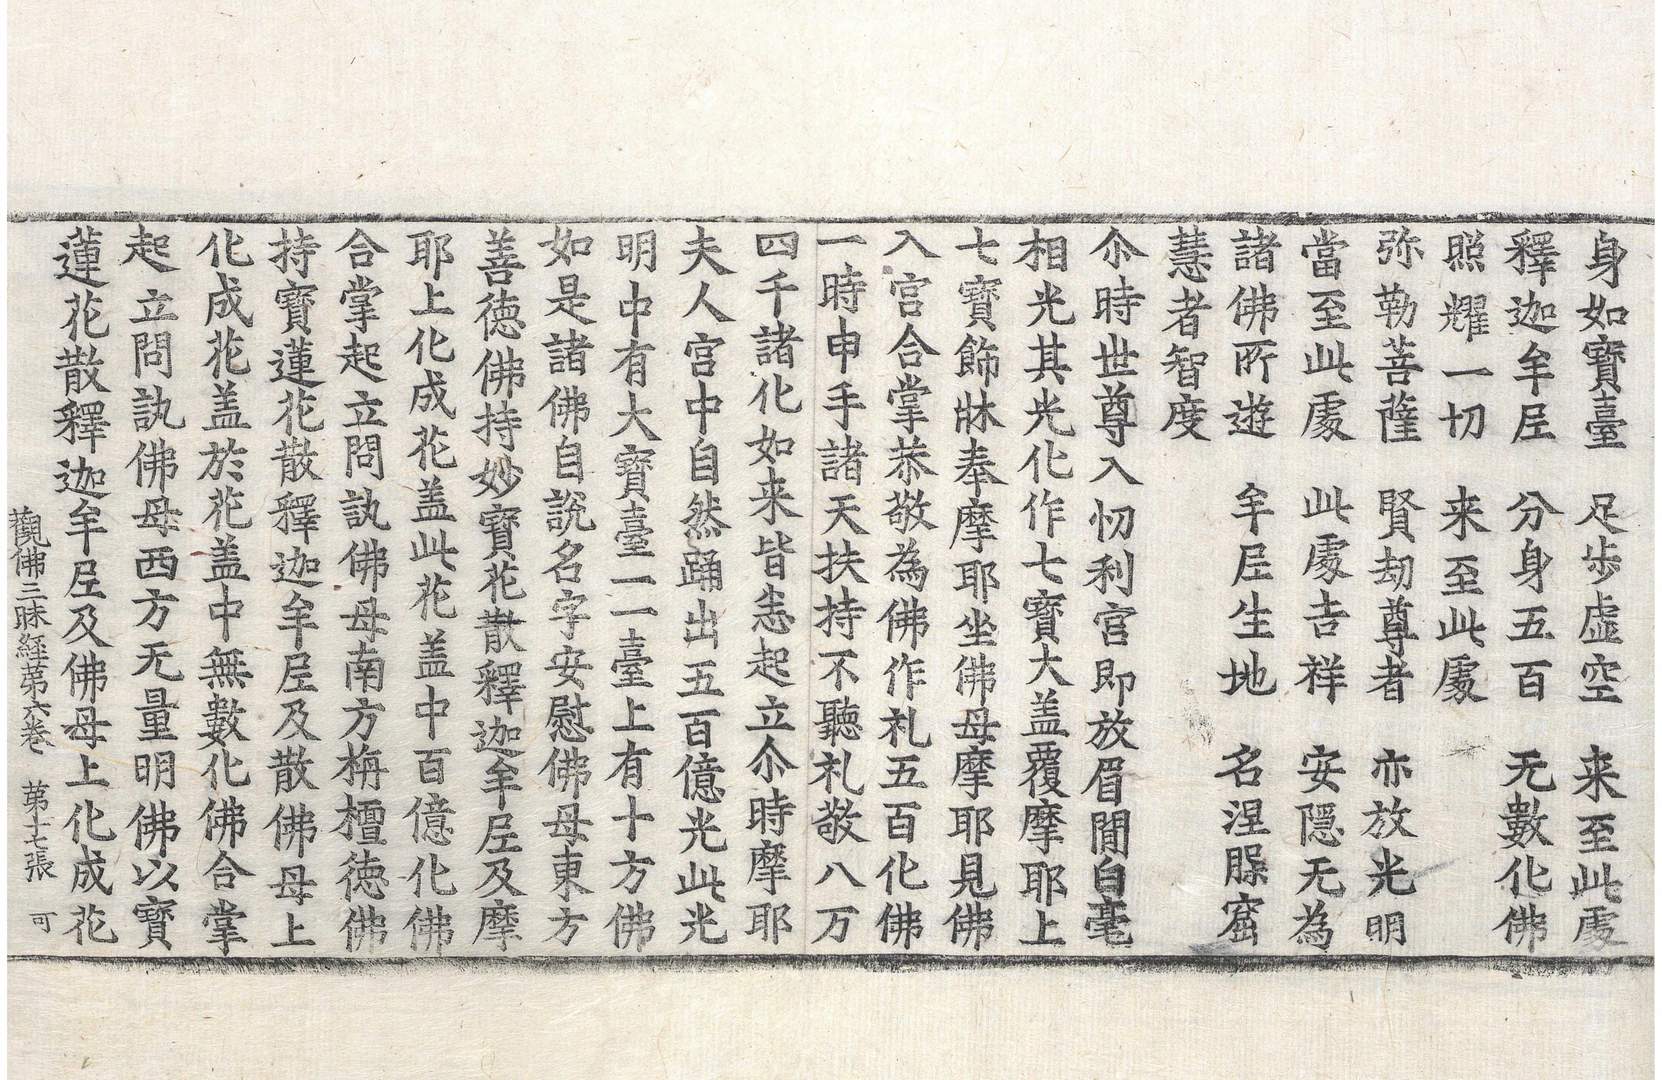 身如寶臺　足步虛空　来至此處
釋迦牟尼　分身五百　无數化佛
照耀一切　来至此處
弥勒菩薩　賢劫尊者　亦放光明
當至此處　此處吉祥　安隱无為
諸佛所遊　牟尼生地　名涅槃窟
慧者智度
尒時世尊入忉利宫即放眉間白毫
相光其光化作七寶大盖覆摩耶上
七寶飾牀奉摩耶坐佛母摩耶見佛
入宫合掌恭敬為佛作礼五百化佛
一時申手諸天扶持不聽礼敬八万
四千諸化如来皆悉起立尒時摩耶
夫人宫中自然踊出五百億光此光
明中有大寶臺一一臺上有十方佛
如是諸佛自說名字安慰佛母東方
善徳佛持妙寶花散釋迦牟尼及摩
耶上化成花盖此花盖中百億化佛
合掌起立問訊佛母南方栴檀徳佛
持寶蓮花散釋迦牟尼及散佛母上
化成花盖於花盖中無數化佛合掌
起立問訊佛母西方无量明佛以寶
蓮花散釋迦牟尼及佛母上化成花
觀佛三昧經苐六卷　苐十七張　可